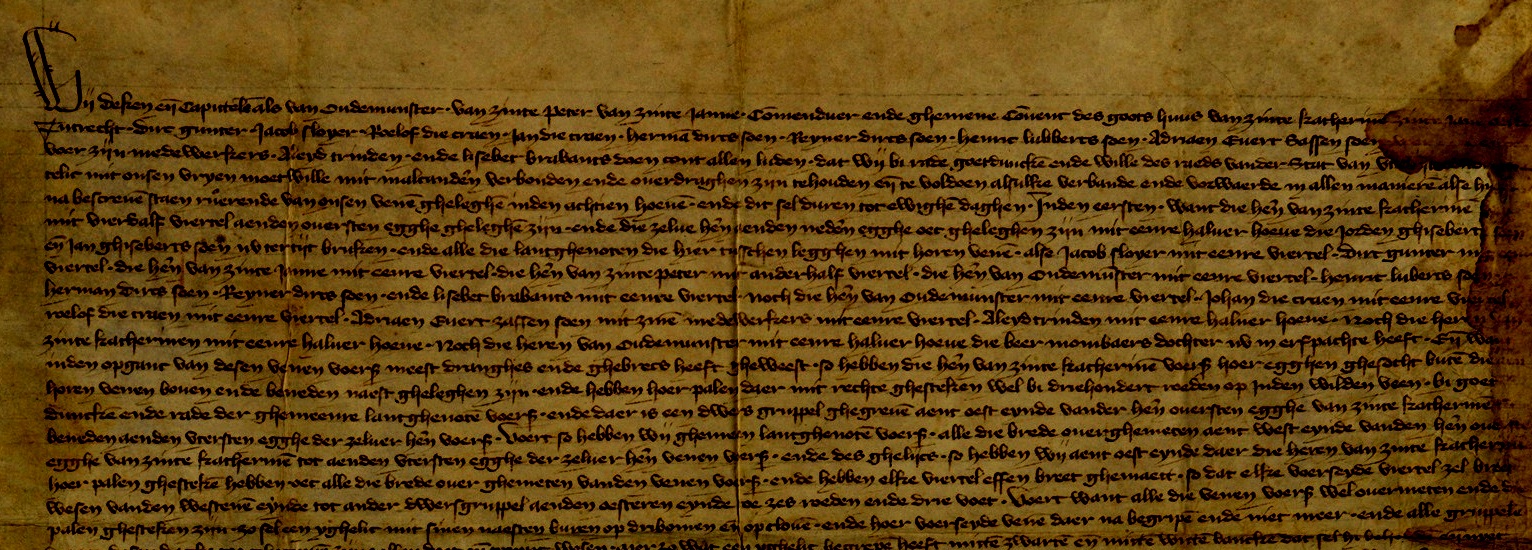 Wij deken en̄ Capittelē als van Oudemunster · van zinte Peter van zinte Janne · Cōmenduer ende ghemene Cōuent des goots huus van zinte katherine
Tutrecht · dirc gunter · Jacob sloyer · Roelof die craen · Jan die craen · hermā dircs soen · Reyner dircs soen · henric luliberts soen · Adriaen Euert Sassen soen
voer zijn medewerkers · Aleyd trinden · ende lisebet brabants doen cont allen luden · dat wij bi rade goetdunckē ende wille des raeds vander Stat van
telic mit onsen vryen moetwille mit malcanderē verbonden ende ouerdraghen zijn te houden en̄ te voldoen alsulke verbande ende vorwaerde in allen manierē alse hi
na bescreuē staen ruerende van onsen venē gheleghē inden achtien hoeuē · ende dit sel duren tot ewighē daghen · Inden eersten · want die herē van zinte katherinē
mit vierdalf viertel aenden ouersten egghe gheleghē zijn · ende die zelue herē aenden nedrē egghe oec gheleghen zijn mit eenre haluer hoeue die Jorden ghiseberts
en̄ Jan ghiseberts soen nv tertijt bruken · ende alle die lantghenoten die hier tusschen legghen mit horen venē · alse Jacob sloyer mit eenre viertel · dirc gunter
viertel · die herē van zinte Janne mit eenre viertel · die herē van zinte peter mit anderhalf viertel · die herē van Oudemunster mit eenre viertel · henric luberts soen
herman dircs soen · Reyner dircs soen · ende lisebet brabants mit eenre viertel · noch die herē van Oudemunster mit eenre viertel · Johan die craen mit eenre viertel
roelof die craen mit eenre viertel · Adriaen Euert zassen soen mit zinē medewerkers mit eenre viertel · Aleyd trinden mit eenre haluer hoeue · Noch die heren van
zinte katherinen mit eenre haluer hoeue · Noch die heren van Oudemunster mit eenre haluer hoeue die beer mombaers dochter nv in erfpachte heeft · En̄ want
inden opganc van desen venen voers meest dranghes ende ghebrecs heeft gheweest · so hebben die herē van zinte katherinē voers hoer egghen ghesocht butē die
horen venen bouen ende beneden naest gheleghen zijn · ende hebben hoer palen daer mit rechte ghesteken wel bi driehondert roeden op Inden wilden veen · bi goet
duncke ende rade der ghemeenre lantghenotē voers · ende daer is een dwers gruppel ghegreuē aent oest eynde vander herē ouersten egghe van zinte katherinē
beneden aenden vtersten egghe der zeluer herē voers · Voert so hebben wij ghemeen lantghenotē voers · alle die brede ouerghemeten aent west eynde vanden herē
egghe van zinte katherinē tot aenden vtersten egghe der zeluer herē venen voers · ende des ghelijcs · so hebben wij aent oest eynde daer die heren van zinte katherinē
hoer · palen ghestekē hebben · oec alle die brede ouer ghemeten vanden venen voers · ende hebben elke viertel effen breet ghemaect · so dat elke voerseyde viertel zel breet
wesen vanden westenē eynde tot ander dwersgruppel aenden oesteren eynde toe zes roeden ende drie voet · Voert want alle die venen voers wel ouermeten ende
palen ghesteken zijn · zo sel een yghelic mit sinen naesten buren op dribomen en̄ opclouē · ende hoer voerseyde vene daer na begripē ende niet meer · ende alle gruppele